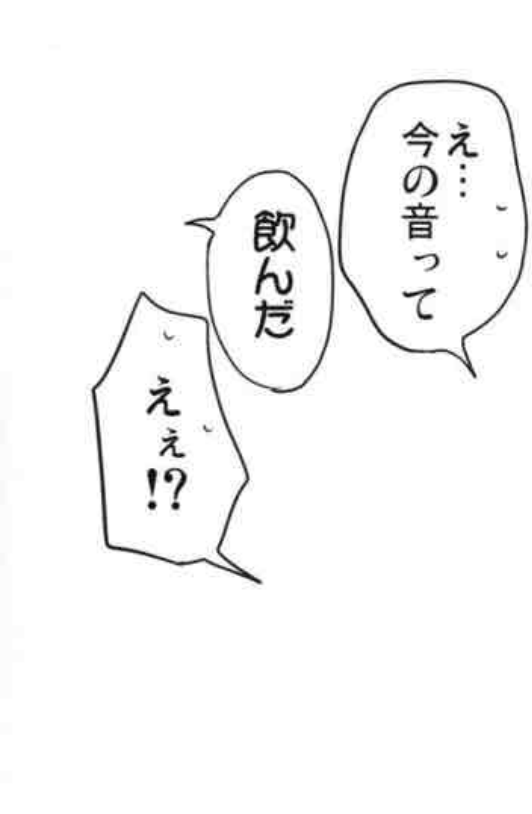 え…
今の音って
飲んだ
えぇ!?